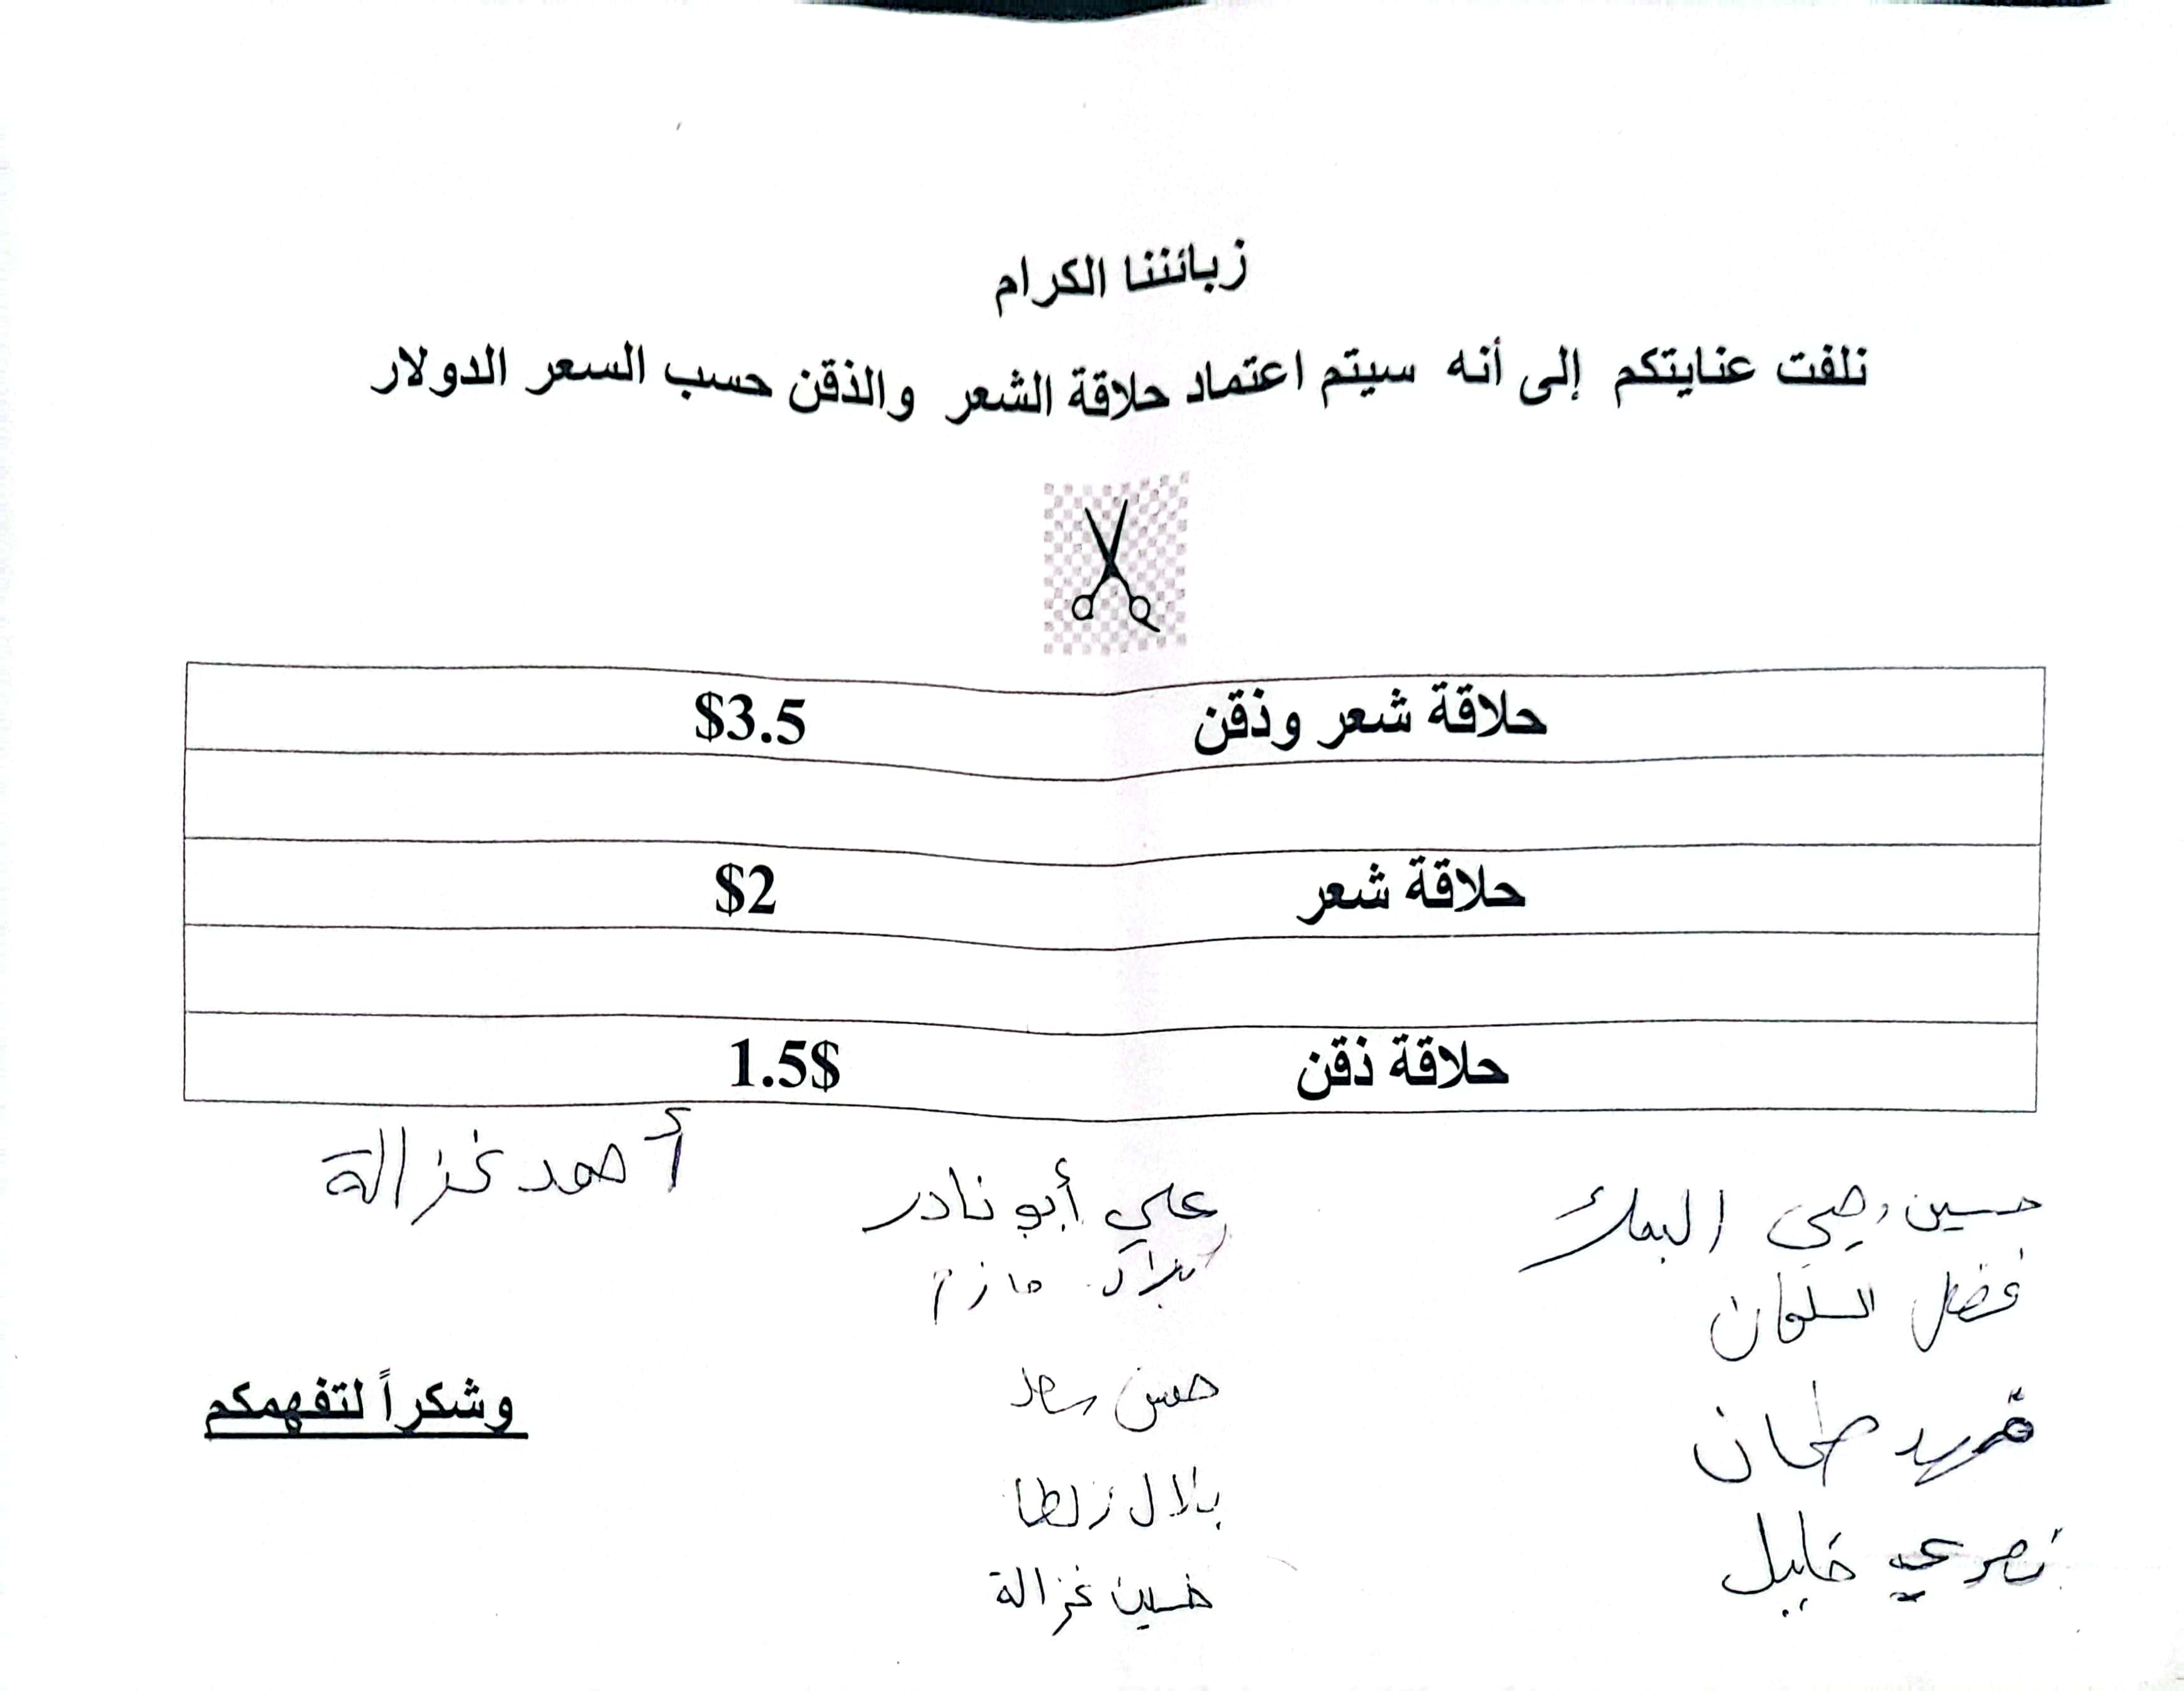 زبائننا الكرام
نلفت عنايتكم إلى أنه سيتم اعتماد حلاقة الشعر والذقن حسب السعر الدولار
حلاقة شعر وذقن $3.5
حلاقة شعر $2
حلاقة ذقن 1.5$
أحمد غزالة
علي أبو نادر
حسين
فضل السلمان
حازم
حسن سعد
طحان
وشكراً لتفهمكم
بلال زلطا
خليل
حسين غزالة